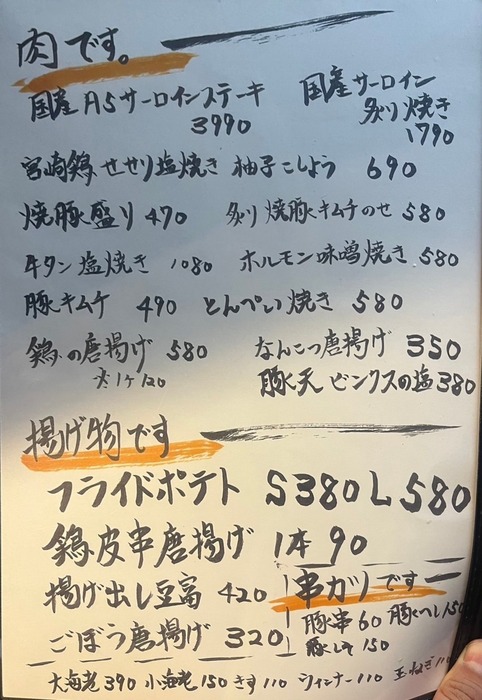 肉です。
国産A5サーロインステーキ 3990
国産サーロイン炙り焼き 1790
宮崎鶏せせり塩焼き 柚子こしょう 690
焼豚盛り 470 炙り焼豚キムチのせ 580
牛タン塩焼き 1080 ホルモン味噌焼き 580
豚キムチ 490 とんぺい焼き 580
鶏の唐揚げ 580 なんこつ唐揚げ 350
大1ケ120 豚天 ピンクスの塩 380
揚げ物です
フライドポテト S380 L580
鶏皮串唐揚げ 1本90
揚げ出し豆富 420
ごぼう唐揚げ 320
串カツです
豚串60 豚へし150
150
大海老390 小海老150 きす110 ウィンナー110 玉ねぎ110